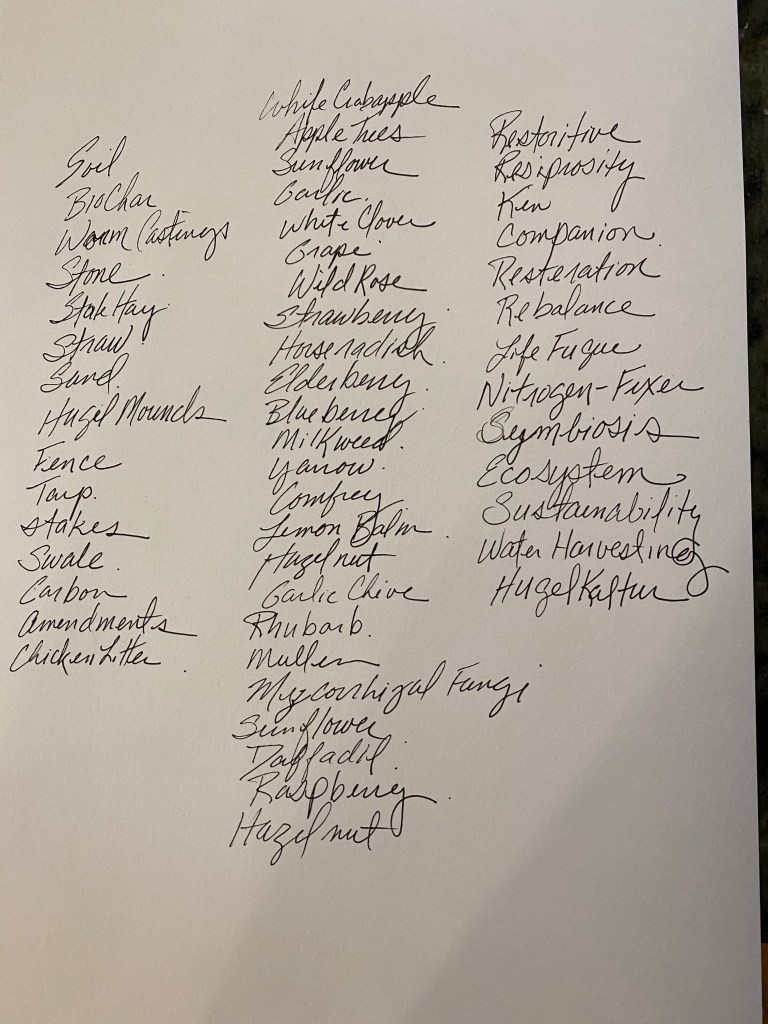 Soil
BioChar
Worm Castings
Stone
Stak Hay
Straw
Sand
Hugel Mounds
Fence
Tarp.
Stakes
Swale
Carbon
Amendments
Chicken Litter
White Crabapple
Apple Trees
Sunflower
Garlic
White Clover
Grape
Wild Rose
Strawberry
Horseradish
Elderberry
Blueberry
Milkweed
Yarrow
Comfrey
Lemon Balm
Hazelnut
Garlic Chive
Rhubarb.
Mullen
Myzcorrhizal Fungi
Sunflower
Daffadil
Raspberry
Hazelnut
Restoritive
Resiprosity
Ken
Companion
Resteration
Rebalance
Life Fuque
Nitrogen-Fixer
Symbiosis
Ecosystem
Sustainability
Water Harvesting
HugelKaltur